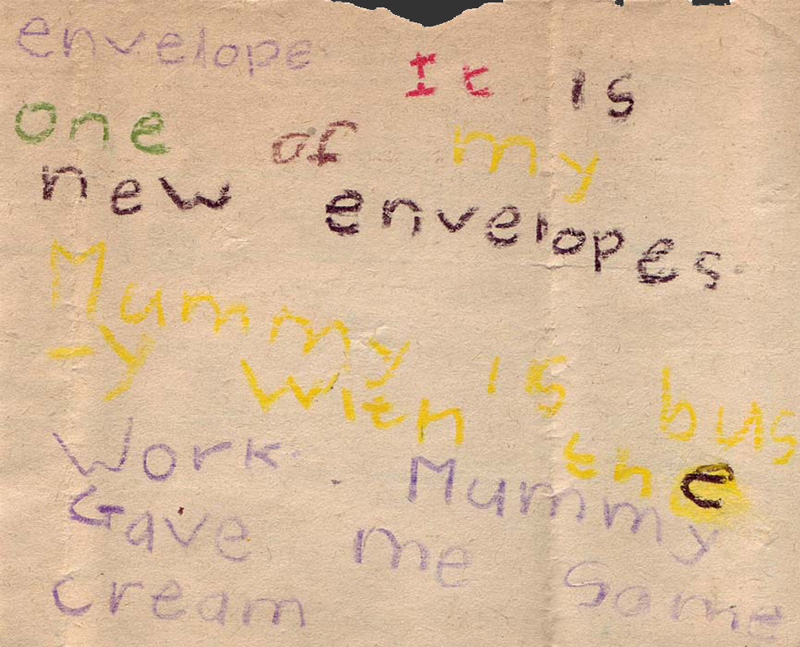 envelope It is
one of my
new envelopes
Mummy is bus
-y with the
Work. Mummy
Gave me Some
cream